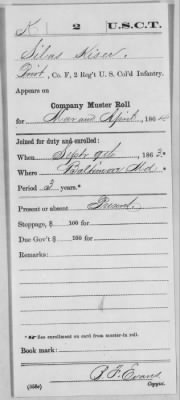 K 2 U.S.C.T.
Silas Kiser
Pvt, Co. F, 2 Reg't U. S. Col'd Infantry.
Appears on
Company Muster Roll
for Mar and April, 1864
Joined for duty and enrolled:
When Sept 9, 1863.*
Where Baltimore Md
Period 3 years.*
Present or absent Present
Stoppage, $ 100 for
Due Gov't $ 100 for
Remarks:
* See enrollment on card from muster-in roll.
Book mark:
P. F. Evans
(358c) Copyist.